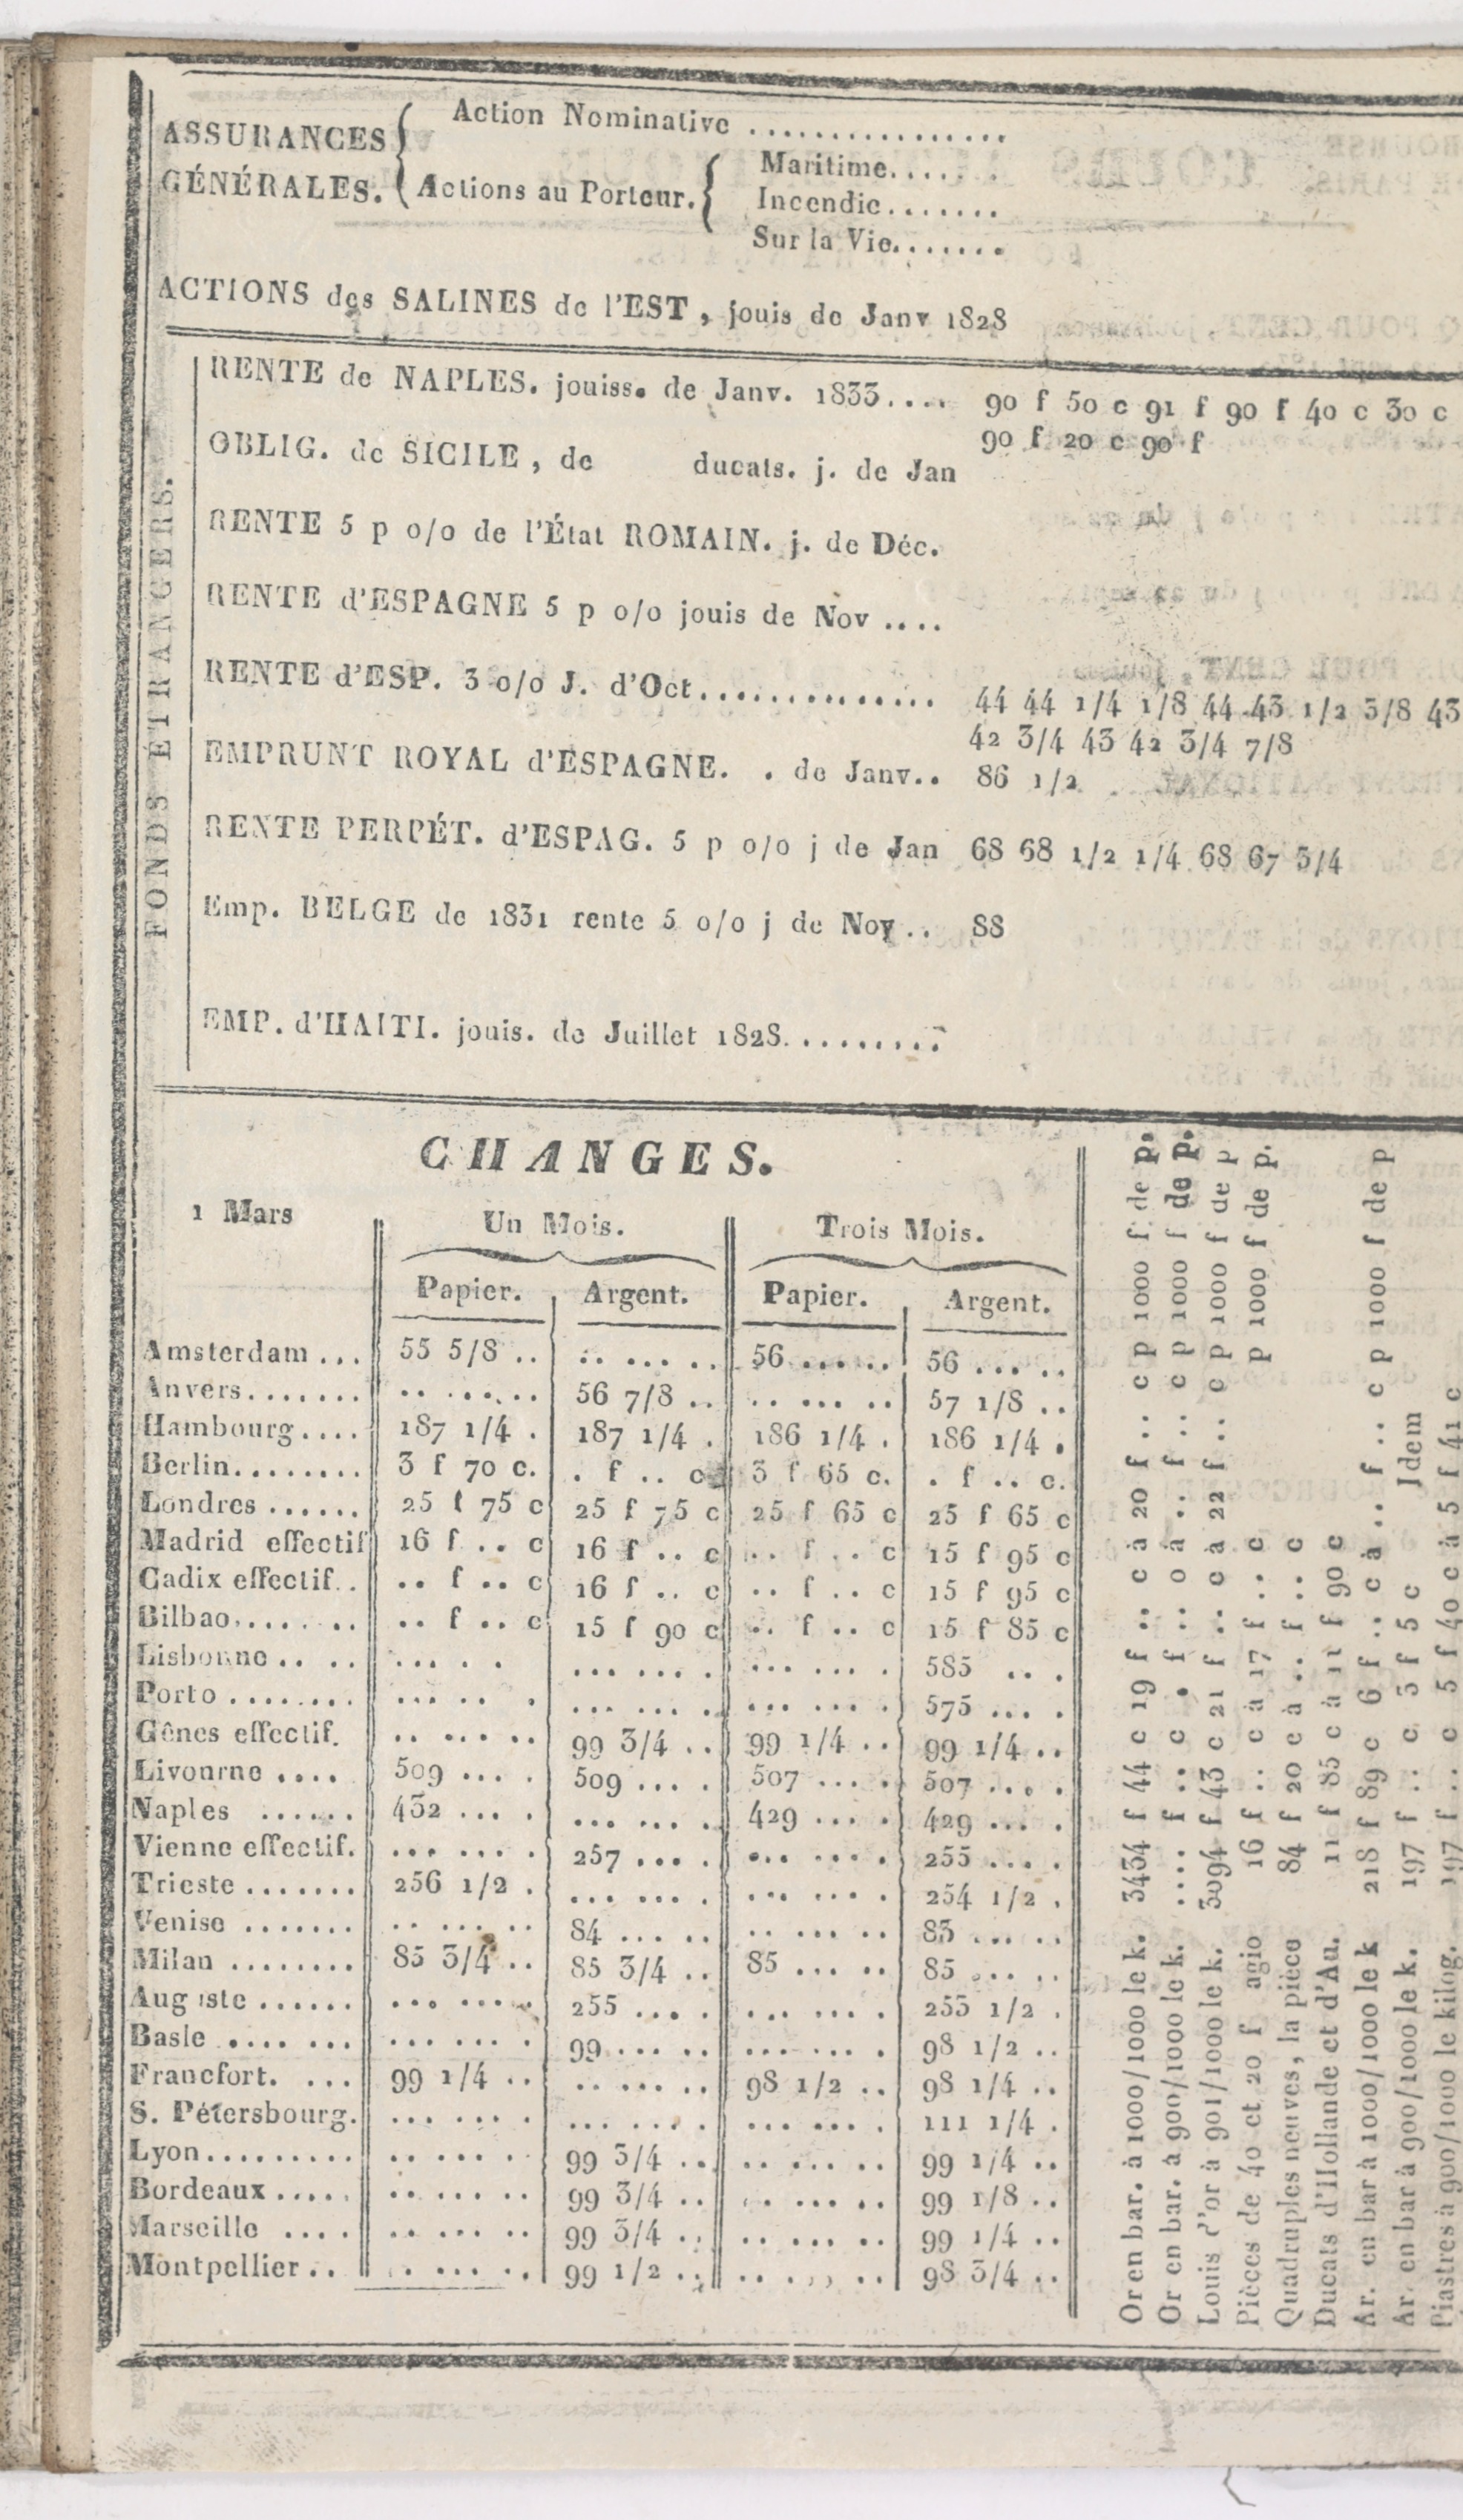 Action Nominative ................
ASSURANCES
GÉNÉRALES.
Actions au Porteur.
Maritime.......
Incendie.......
Sur la Vie.......
ACTIONS des SALINES de l'EST, jouis de Janv 1828
FONDS ÉTRANGERS.
RENTE de NAPLES. jouiss. de Janv. 1833.... 90 f 50 c 91 f 90 f 40 c 30 c
90 f 20 c 90 f
OBLIG. de SICILE, de ducats. j. de Jan
RENTE 5 p 0/0 de l'État ROMAIN. j. de Déc.
RENTE d'ESPAGNE 5 p 0/0 jouis de Nov ....
RENTE d'ESP. 3 0/0 J. d'Oct.............. 44 44 1/4 1/8 44 43 1/2 3/8 43
42 3/4 43 42 3/4 7/8
EMPRUNT ROYAL d'ESPAGNE. . de Janv.. 86 1/2
RENTE PERPÉT. d'ESPAG. 5 p 0/0 j de Jan 68 68 1/2 1/4 68 67 3/4
Emp. BELGE de 1831 rente 5 0/0 j de Nov.. 88
EMP. d'HAITI. jouis. de Juillet 1828.........
CHANGES.
1 Mars Un Mois. Trois Mois.
Papier. Argent. Papier. Argent.
Amsterdam ... 55 5/8 .. .. ... .. 56 ... .. 56 ... ..
Anvers....... .. ... .. 56 7/8 .. .. ... .. 57 1/8 ..
Hambourg.... 187 1/4 . 187 1/4 . 186 1/4 . 186 1/4 .
Berlin........ 3 f 70 c. . f .. c 3 f 65 c. . f .. c.
Londres ...... 25 f 75 c 25 f 75 c 25 f 65 c 25 f 65 c
Madrid effectif 16 f .. c 16 f .. c .. f .. c 15 f 95 c
Cadix effectif.. .. f .. c 16 f .. c .. f .. c 15 f 95 c
Bilbao........ .. f .. c 15 f 90 c .. f .. c 15 f 85 c
Lisbonne .. .. ... . . ... ... . ... ... . 585 .. .
Porto ........ ... .. . ... ... . ... ... . 575 ... .
Gênes effectif. .. ... .. 99 3/4 .. 99 1/4 .. 99 1/4 ..
Livourne .... 509 ... . 509 ... . 507 ... . 507 ... .
Naples ...... 432 ... . ... ... . 429 ... . 429 ... .
Vienne effectif. ... ... . 257 ... . ... ... . 255 ... .
Trieste ....... 256 1/2 . ... ... . ... ... . 254 1/2 .
Venise ....... .. ... .. 84 ... .. .. ... .. 83 ... ..
Milan ........ 85 3/4 .. 85 3/4 .. 85 ... .. 85 ... ..
Aug ste ...... ... ... . 255 ... . .. ... . 253 1/2 .
Basle .... ... ... ... . 99 ... .. ... ... . 98 1/2 ..
Francfort. ... 99 1/4 .. .. ... .. 98 1/2 .. 98 1/4 ..
S. Pétersbourg. ... ... . ... ... . ... ... . 111 1/4 .
Lyon......... .. ... .. 99 3/4 .. .. ... .. 99 1/4 ..
Bordeaux ..... .. ... .. 99 3/4 .. .. ... .. 99 1/8 ..
Marseille .... .. ... .. 99 3/4 .. .. ... .. 99 1/4 ..
Montpellier .. .. ... .. 99 1/2 .. .. ... .. 98 3/4 ..
Or en bar. à 1000/1000 le k. 3434 f 44 c 19 f .. c à 20 f .. c p 1000 f de p.
Or en bar. à 900/1000 le k. .... f .. c . f .. o à .. f .. c p 1000 f de p.
Louis d'or à 901/1000 le k. 3094 f 43 c 21 f .. c à 22 f .. c p 1000 f de p
Pièces de 40 et 20 f agio 16 f .. c à 17 f .. c p 1000 f de p.
Quadruples neuves, la pièce 84 f 20 c à .. f .. c
Ducats d'Hollande et d'Au. 11 f 85 c à 11 f 90 c
Ar. en bar à 1000/1000 le k 218 f 89 c 6 f .. c à .. f .. c p 1000 f de p
Ar. en bar à 900/1000 le k. 197 f .. c 3 f 5 c Idem
Piastres à 900/1000 le kilog. 197 f .. c 5 f 40 c à 5 f 41 c